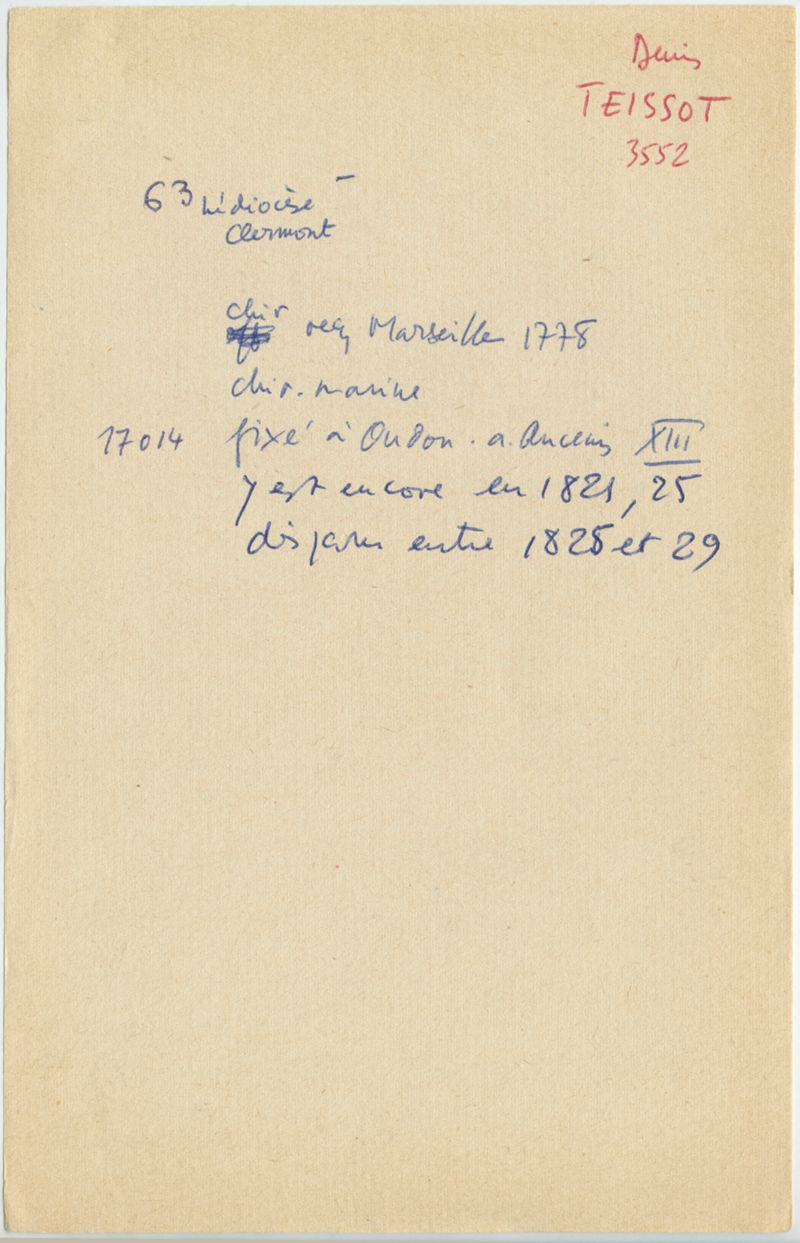 Denis
TEISSOT
3552
63 né diocèse
Clermont
chir
reçu Marseille 1778
chir. marine
17014 fixé à Oudon. a. Ancenis XIII
y est encore en 1821, 25
disparu entre 1825 et 29